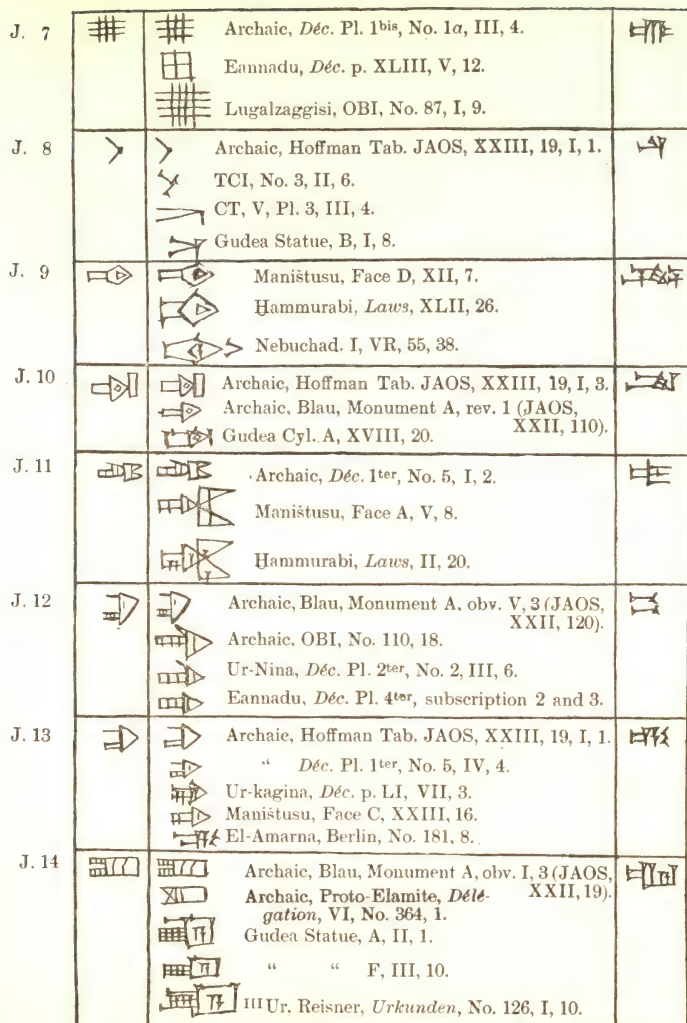 J. 7 Archaic, Déc. Pl. 1bis, No. 1a, III, 4.
Eannadu, Déc. p. XLIII, V, 12.
Lugalzaggisi, OBI, No. 87, I, 9.
J. 8 Archaic, Hoffman Tab. JAOS, XXIII, 19, I, 1.
TCI, No. 3, II, 6.
CT, V, Pl. 3, III, 4.
Gudea Statue, B, I, 8.
J. 9 Maništusu, Face D, XII, 7.
Ḫammurabi, Laws, XLII, 26.
Nebuchad. I, VR, 55, 38.
J. 10 Archaic, Hoffman Tab. JAOS, XXIII, 19, I, 3.
Archaic, Blau, Monument A, rev. 1 (JAOS,
XXII, 110).
Gudea Cyl. A, XVIII, 20.
J. 11 Archaic, Déc. 1ter, No. 5, I, 2.
Maništusu, Face A, V, 8.
Hammurabi, Laws, II, 20.
J. 12 Archaic, Blau, Monument A. obv. V, 3 (JAOS,
XXII, 120).
Archaic, OBI, No. 110, 18.
Ur-Nina, Déc. Pl. 2ter, No. 2, III, 6.
Eannadu, Déc. Pl. 4ter, subscription 2 and 3.
J. 13 Archaic, Hoffman Tab. JAOS, XXIII, 19, I, 1.
“ Déc. Pl. 1ter, No. 5, IV, 4.
Ur-kagina, Déc. p. LI, VII, 3.
Maništusu, Face C, XXIII, 16.
El-Amarna, Berlin, No. 181, 8.
J. 14 Archaic, Blau, Monument A, obv. I, 3 (JAOS,
XXII, 19).
Archaic, Proto-Elamite, Délé-
gation, VI, No. 364, 1.
Gudea Statue, A, II, 1.
“ “ F, III, 10.
III Ur, Reisner, Urkunden, No. 126, I, 10.